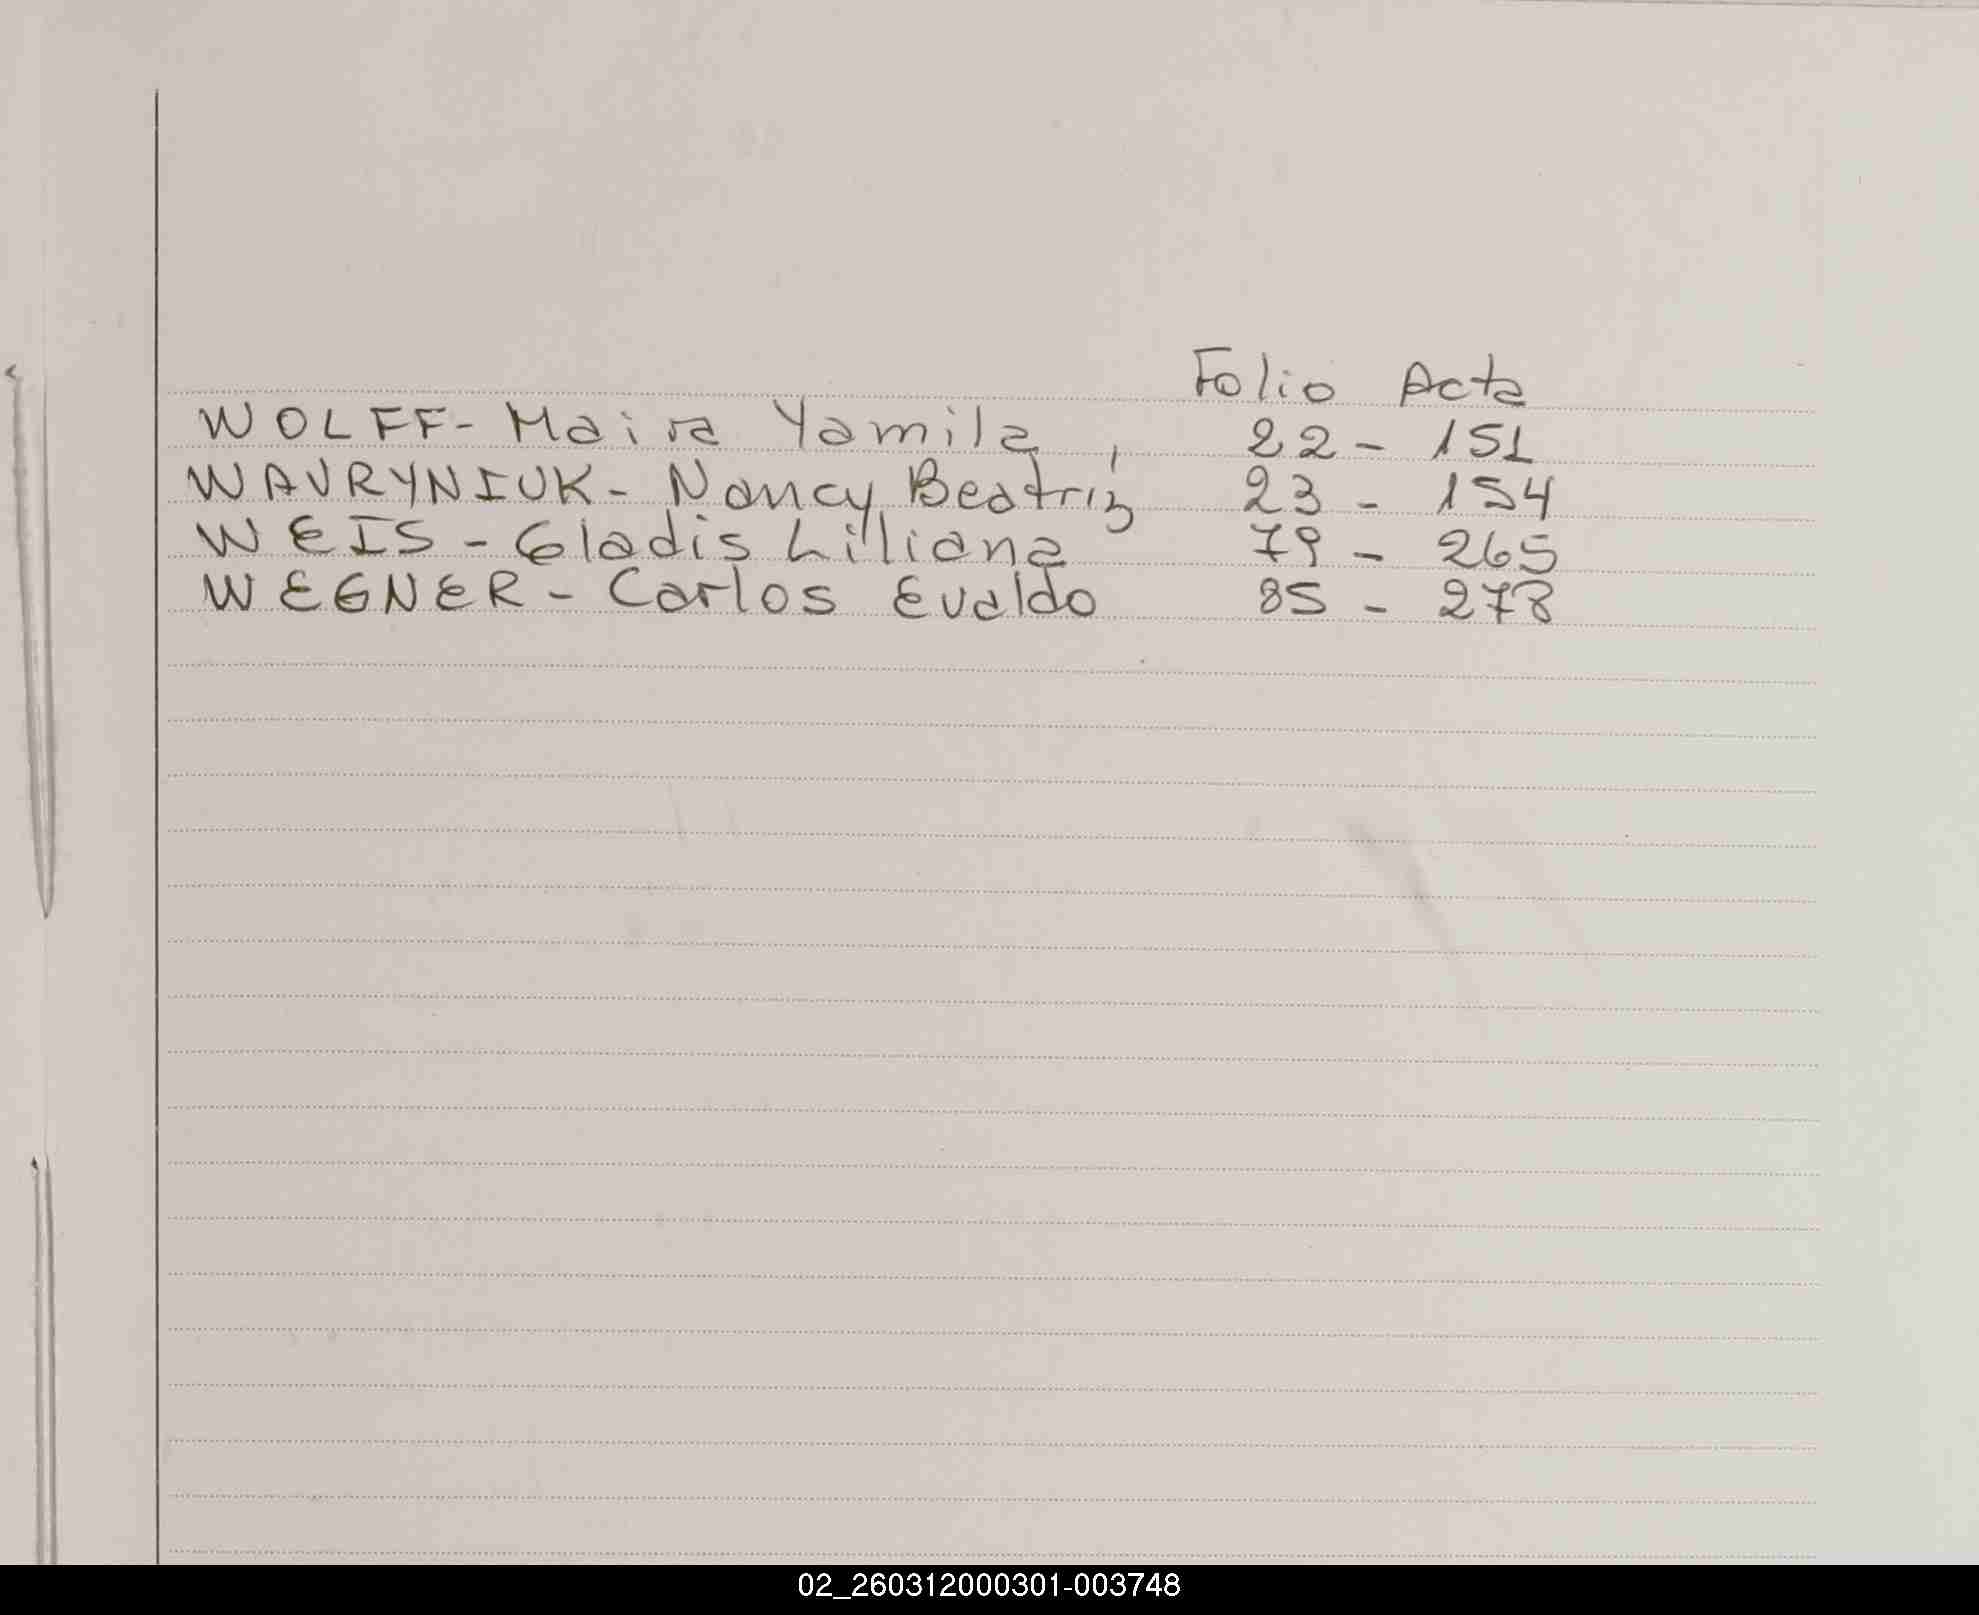 Folio Acta
WOLFF - Maira Yamila 22 - 151
WAVRYNIUK - Nancy Beatriz 23 - 154
WEIS - Gladis Liliana 79 - 265
WEGNER - Carlos Evaldo 85 - 278
02_260312000301-003748